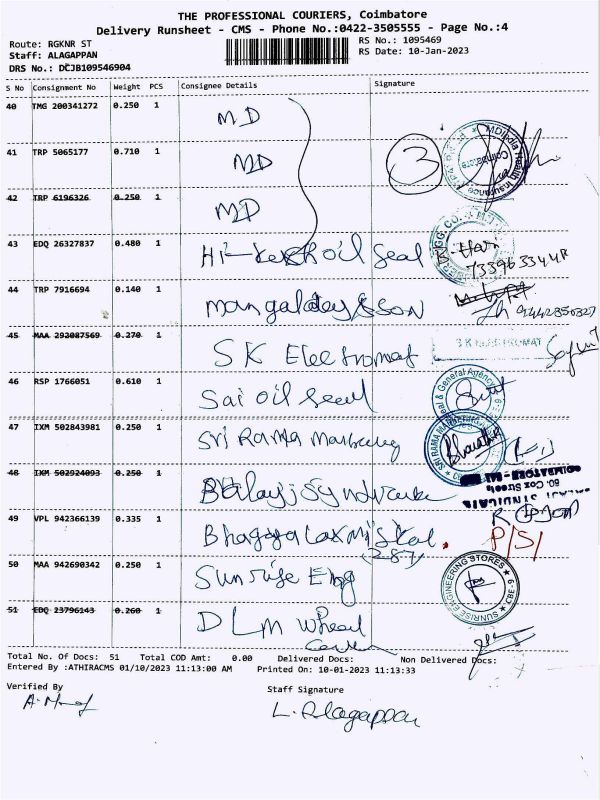 THE PROFESSIONAL COURIERS, Coimbatore
Delivery Runsheet - CMS - Phone No.:0422-3505555 - Page No.:4
Route: RGKNR ST
RS No.: 1095469
Staff: ALAGAPPAN
RS Date: 10-Jan-2023
DRS No.: DCJB109546904
S No Consignment No Weight PCS Consignee Details Signature
40 TMG 200341272 0.250 1 MD
41 TRP 5065177 0.710 1 MD 3
42 TRP 6196326 0.250 1 MD
43 EDQ 26327837 0.480 1 Hi-Tech oil Seal B. Hari
44 TRP 7916694 0.140 1 & SON
45 MAA 292087569 0.270 1 SK Electromat
46 RSP 1766051 0.610 1 Sai oil Seal
47 IXM 502843981 0.250 1 Sri Rama
48 IXM 502924093 0.250 1 Balaji
60. Cox Street
COIMBATORE
49 VPL 942366139 0.335 1 P/S/
50 MAA 942690342 0.250 1 Sunrise Eng
SUNRISE ENGINEERING STORES
51 EDQ 23796143 0.260 1 DLM Wheel
Total No. Of Docs: 51 Total COD Amt: 0.00 Delivered Docs: Non Delivered Docs:
Entered By :ATHIRACMS 01/10/2023 11:13:00 AM Printed On: 10-01-2023 11:13:33
Verified By
Staff Signature
L. Alagappan